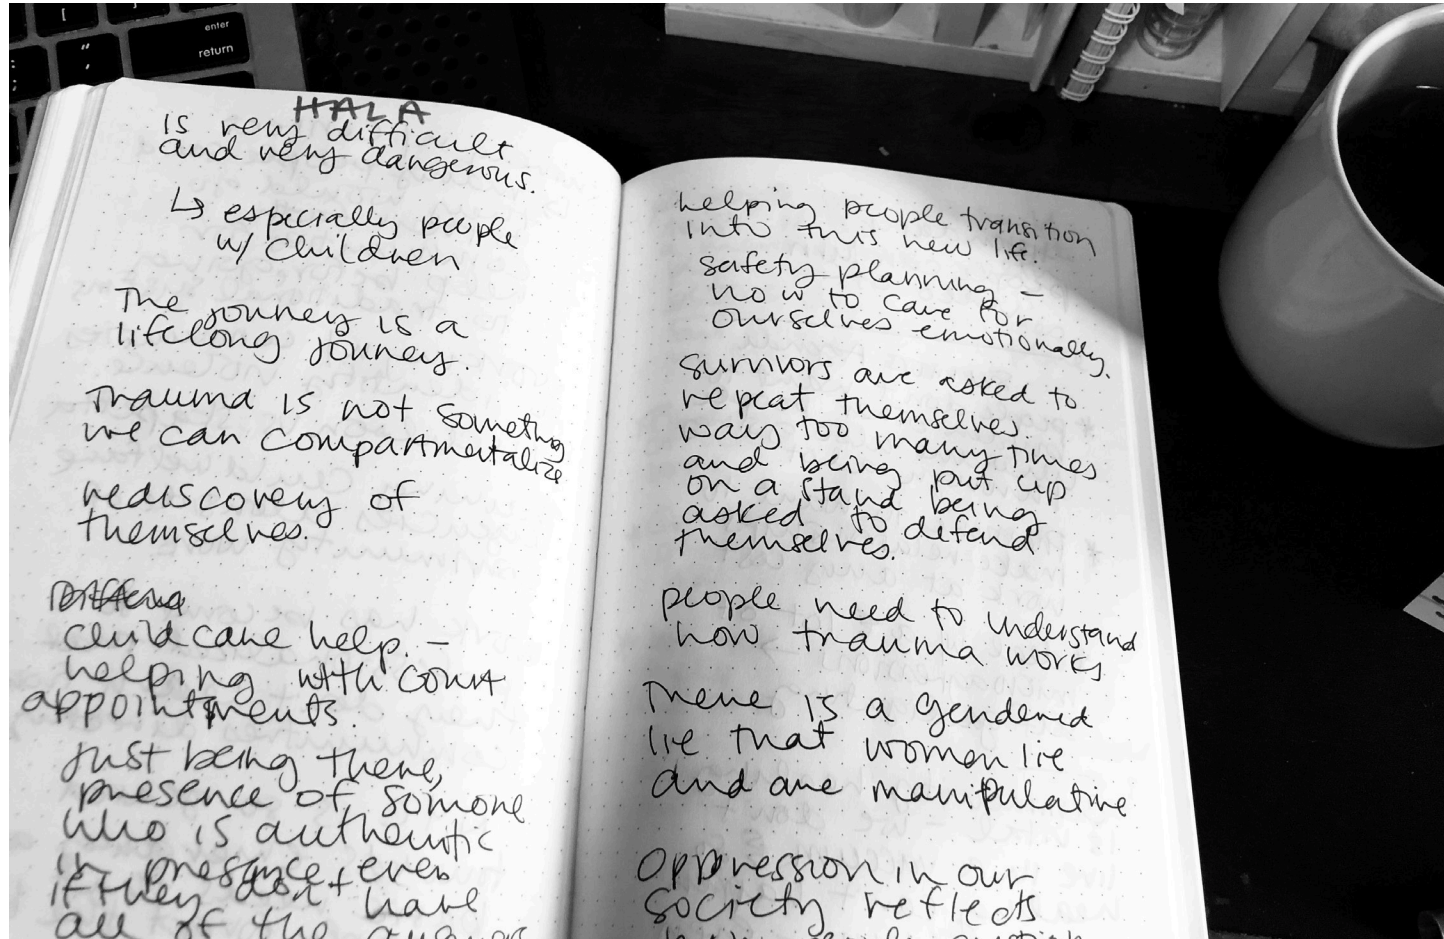 enter
return
HALA
is very difficult
and very dangerous.
↳ especially people
w/ children
The journey is a
lifelong journey.
Trauma is not something
we can compartmentalize
rediscovery of
themselves.
childcare help. -
helping with court
appointments.
Just being there,
presence of somone
who is authentic
in presence even
if they don't have
all of the
helping people transition
into this new life.
safety planning -
how to care for
ourselves emotionally.
survivors are asked to
repeat themselves.
way too many times
and being put up
on a stand being
asked to defend
themselves.
people need to understand
how trauma works
There is a gendered
lie that women lie
and are manipulative
Oppression in our
society reflects